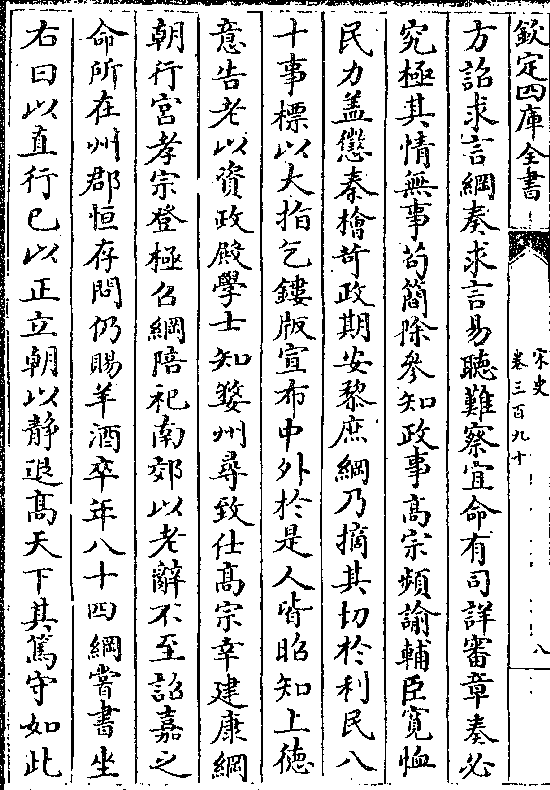 欽定四庫全書
宋史
卷三百九十
八
方詔求言綱奏求言易聽難察宜命有司詳審章奏必
究極其情無事茍簡除參知政事高宗頻諭輔臣寛恤
民力盖懲秦檜苛政期安黎庶綱乃摘其切於利民八
十事標以大指乞鏤版宣布中外於是人皆昭知上徳
意告老以資政殿學士知婺州尋致仕高宗幸建康綱
朝行宮孝宗登極召綱陪祀南郊以老辭不至詔嘉之
命所在州郡恒存問仍賜羊酒卒年八十四綱嘗書坐
右曰以直行己以正立朝以静退高天下其篤守如此